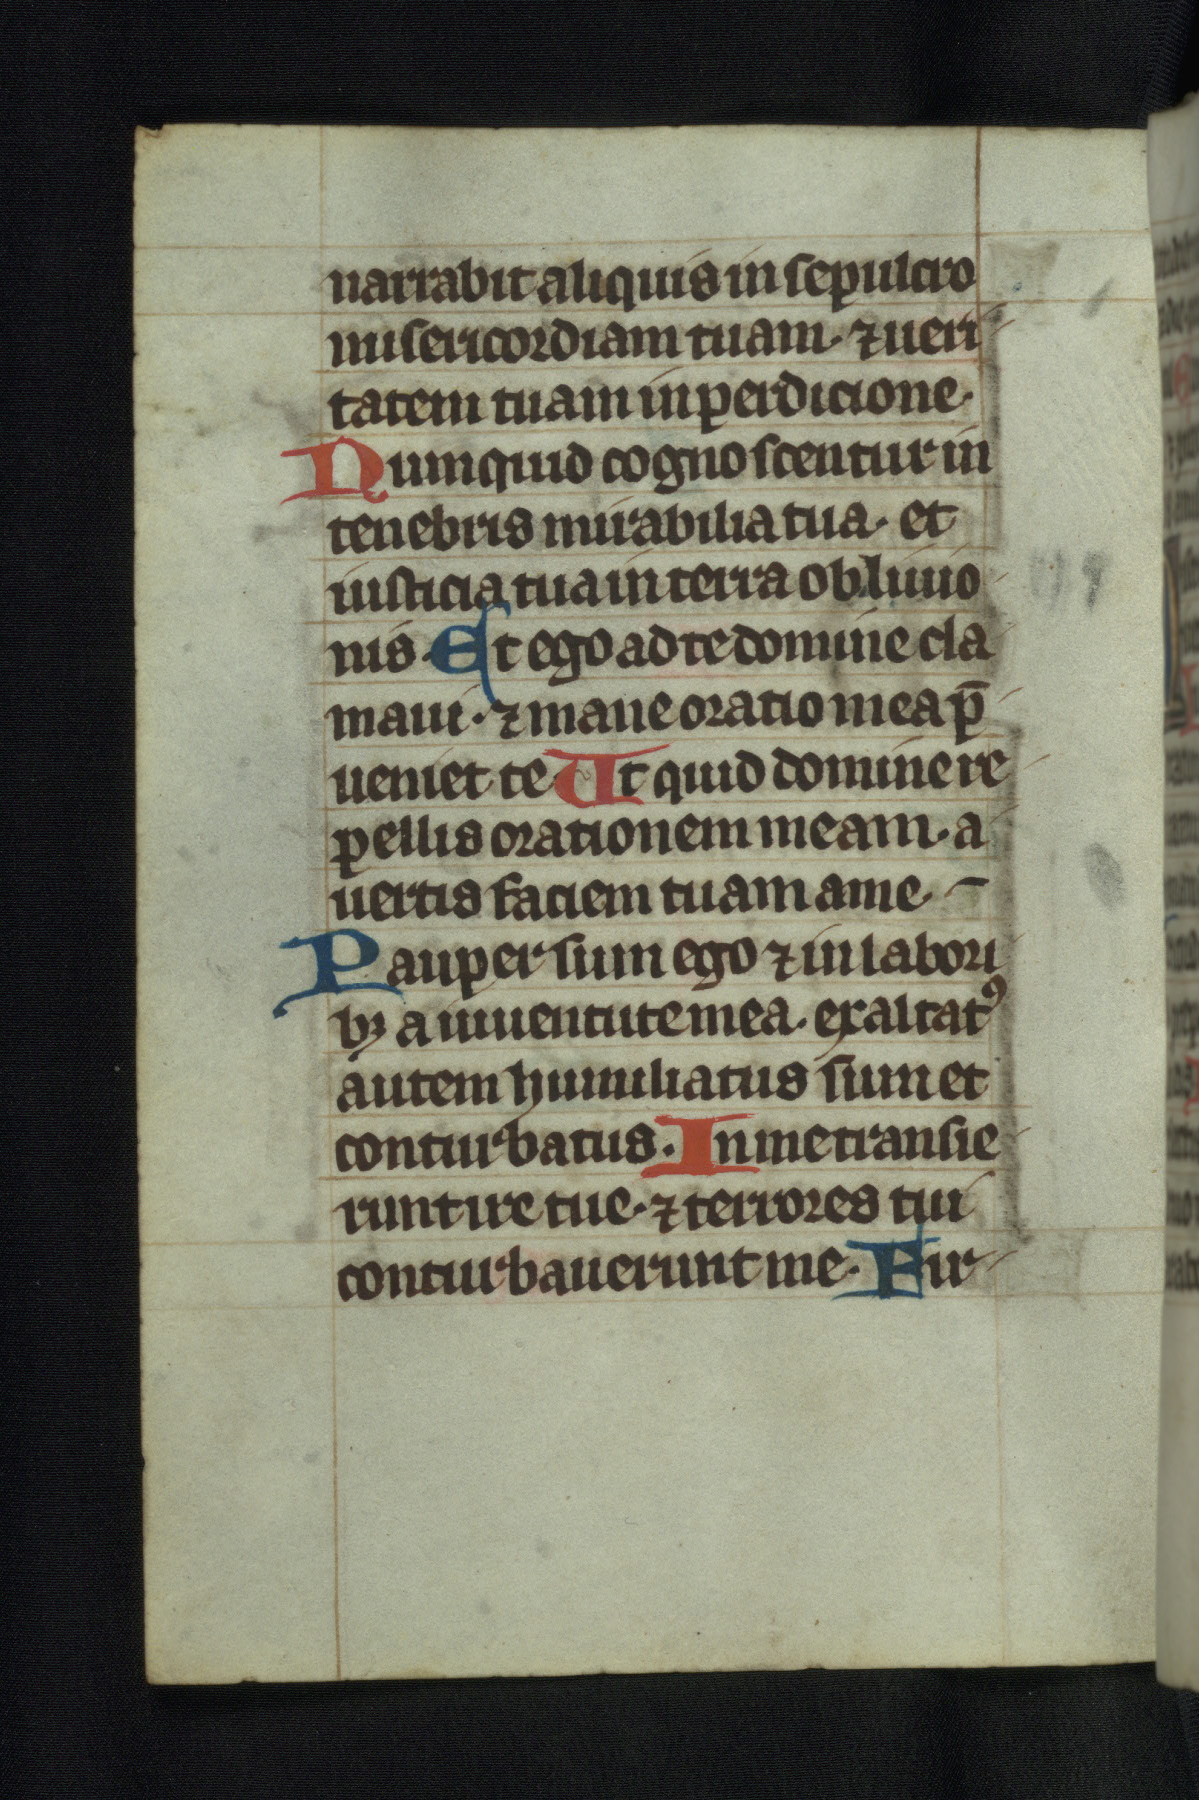 narrabit aliquis in sepulcro
misericordiam tuam· ⁊ ueri
tatem tuam in perdicione·
Numquid cognoscentur in
tenebris mirabilia tua· et
iusticia tua in terra obliuio
nis· Et ego ad te domine cla
maui· ⁊ mane oratio mea p̄
ueniet te Ut quid domine re
pellis orationem meam· a
uertis faciem tuam a me·
Pauper sum ego ⁊ in labori
bꝫ a iuuentute mea· exaltatꝰ
autem humiliatus sum et
conturbatus· In me transie
runt ire tue· ⁊ terrores tui
conturbauerunt me· Cir